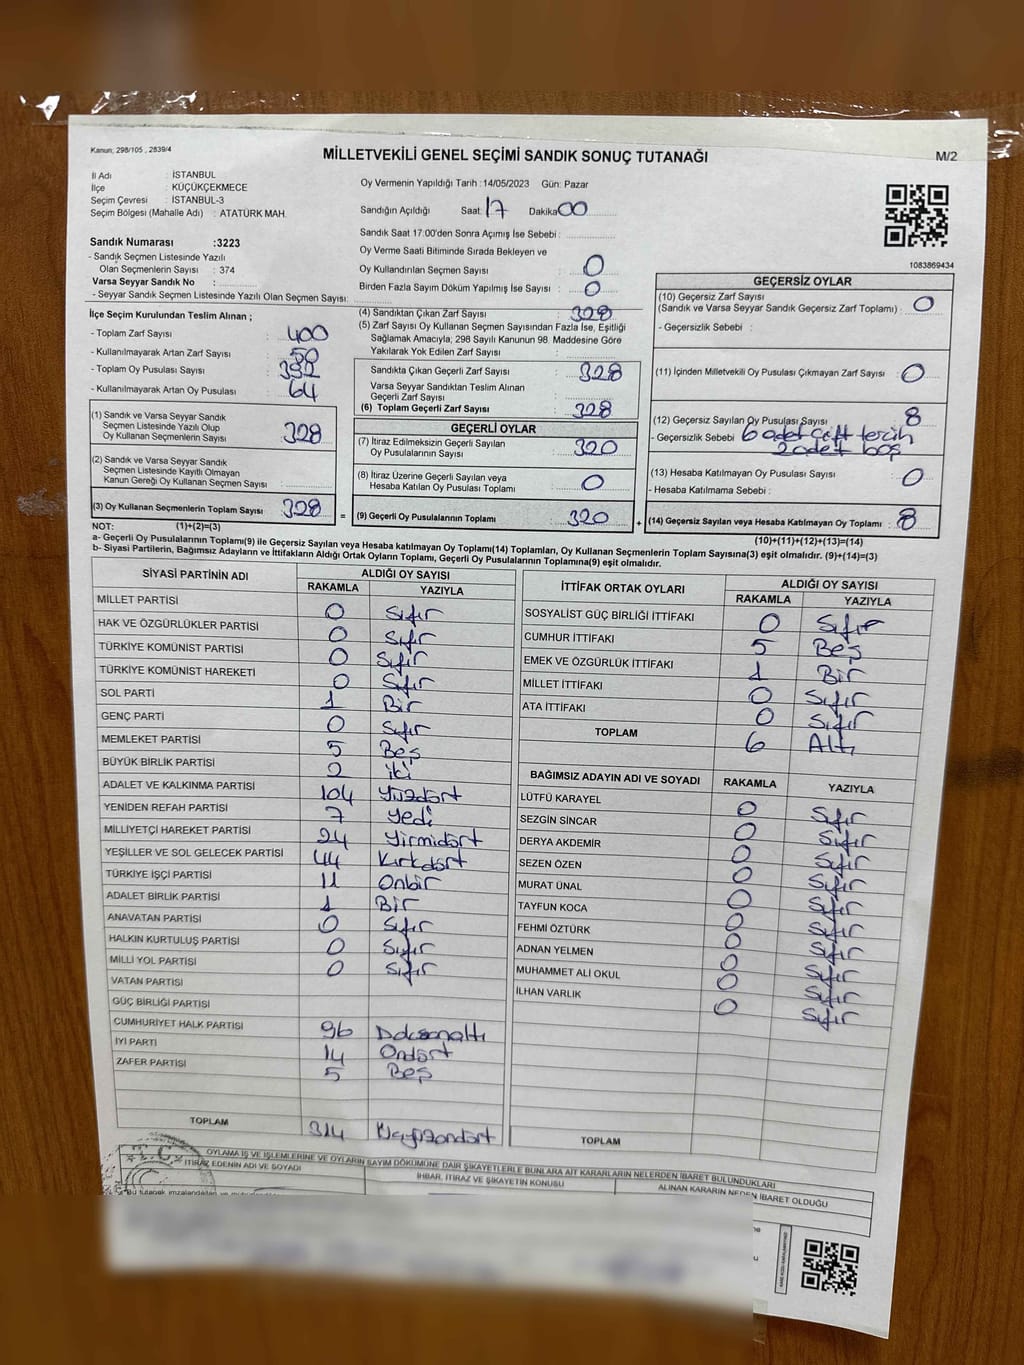 Kanun; 298/105 , 2839/4
MİLLETVEKİLİ GENEL SEÇİMİ SANDIK SONUÇ TUTANAĞI
M/2
İl Adı : İSTANBUL
İlçe : KÜÇÜKÇEKMECE
Seçim Çevresi : İSTANBUL-3
Seçim Bölgesi (Mahalle Adı) : ATATÜRK MAH.
Sandık Numarası :3223
- Sandık Seçmen Listesinde Yazılı
Olan Seçmenlerin Sayısı : 374
Varsa Seyyar Sandık No :
- Seyyar Sandık Seçmen Listesinde Yazılı Olan Seçmen Sayısı:
Oy Vermenin Yapıldığı Tarih :14/05/2023 Gün: Pazar
Sandığın Açıldığı Saat: 17 Dakika: 00
Sandık Saat 17:00'den Sonra Açımış İse Sebebi :
Oy Verme Saati Bitiminde Sırada Bekleyen ve
Oy Kullandırılan Seçmen Sayısı : 0
Birden Fazla Sayım Döküm Yapılmış İse Sayısı : 0
1083869434
İlçe Seçim Kurulundan Teslim Alınan ;
- Toplam Zarf Sayısı : 400
- Kullanılmayarak Artan Zarf Sayısı : 50
- Toplam Oy Pusulası Sayısı : 392
- Kullanılmayarak Artan Oy Pusulası : 64
(1) Sandık ve Varsa Seyyar Sandık
Seçmen Listesinde Yazılı Olup
Oy Kullanan Seçmenlerin Sayısı : 328
(2) Sandık ve Varsa Seyyar Sandık
Seçmen Listesinde Kayıtlı Olmayan
Kanun Gereği Oy Kullanan Seçmen Sayısı :
(3) Oy Kullanan Seçmenlerin Toplam Sayısı : 328
(4) Sandıktan Çıkan Zarf Sayısı : 328
(5) Zarf Sayısı Oy Kullanan Seçmen Sayısından Fazla İse, Eşitliği
Sağlamak Amacıyla; 298 Sayılı Kanunun 98. Maddesine Göre
Yakılarak Yok Edilen Zarf Sayısı :
Sandıkta Çıkan Geçerli Zarf Sayısı : 328
Varsa Seyyar Sandıktan Teslim Alınan
Geçerli Zarf Sayısı :
(6) Toplam Geçerli Zarf Sayısı : 328
GEÇERLİ OYLAR
(7) İtiraz Edilmeksizin Geçerli Sayılan
Oy Pusulalarının Sayısı : 320
(8) İtiraz Üzerine Geçerli Sayılan veya
Hesaba Katılan Oy Pusulası Toplamı : 0
= (9) Geçerli Oy Pusulalarının Toplamı : 320 +
GEÇERSİZ OYLAR
(10) Geçersiz Zarf Sayısı
(Sandık ve Varsa Seyyar Sandık Geçersiz Zarf Toplamı) : 0
- Geçersizlik Sebebi :
(11) İçinden Milletvekili Oy Pusulası Çıkmayan Zarf Sayısı : 0
(12) Geçersiz Sayılan Oy Pusulası Sayısı : 8
- Geçersizlik Sebebi : 6 adet çift tercih
2 adet boş
(13) Hesaba Katılmayan Oy Pusulası Sayısı : 0
- Hesaba Katılmama Sebebi :
(14) Geçersiz Sayılan veya Hesaba Katılmayan Oy Toplamı : 8
NOT: (1)+(2)=(3)
(10)+(11)+(12)+(13)=(14)
a- Geçerli Oy Pusulaları Toplamı(9) ile Geçersiz Sayılan veya Hesaba katılmayan Oy Toplamı(14) Toplamları, Oy Kullanan Seçmenlerin Toplam Sayısına(3) eşit olmalıdır. (9)+(14)=(3)
b- Siyasi Partilerin, Bağımsız Adayların ve İttifakların Aldığı Ortak Oyların Toplamı, Geçerli Oy Pusulalarının Toplamına(9) eşit olmalıdır.
SİYASİ PARTİNİN ADI ALDIĞI OY SAYISI
RAKAMLA YAZIYLA
MİLLET PARTİSİ 0 Sıfır
HAK VE ÖZGÜRLÜKLER PARTİSİ 0 Sıfır
TÜRKİYE KOMÜNİST PARTİSİ 0 Sıfır
TÜRKİYE KOMÜNİST HAREKETİ 0 Sıfır
SOL PARTİ 1 Bir
GENÇ PARTİ 0 Sıfır
MEMLEKET PARTİSİ 5 Beş
BÜYÜK BİRLİK PARTİSİ 2 iki
ADALET VE KALKINMA PARTİSİ 104 Yüzdört
YENİDEN REFAH PARTİSİ 7 Yedi
MİLLİYETÇİ HAREKET PARTİSİ 24 Yirmidört
YEŞİLLER VE SOL GELECEK PARTİSİ 44 Kırkdört
TÜRKİYE İŞÇİ PARTİSİ 11 Onbir
ADALET BİRLİK PARTİSİ 1 Bir
ANAVATAN PARTİSİ 0 Sıfır
HALKIN KURTULUŞ PARTİSİ 0 Sıfır
MİLLİ YOL PARTİSİ 0 Sıfır
VATAN PARTİSİ
GÜÇ BİRLİĞİ PARTİSİ
CUMHURİYET HALK PARTİSİ 96 Doksanaltı
İYİ PARTİ 14 Ondört
ZAFER PARTİSİ 5 Beş
TOPLAM 314 Üçyüzondört
İTTİFAK ORTAK OYLARI ALDIĞI OY SAYISI
RAKAMLA YAZIYLA
SOSYALİST GÜÇ BİRLİĞİ İTTİFAKI 0 Sıfır
CUMHUR İTTİFAKI 5 Beş
EMEK VE ÖZGÜRLÜK İTTİFAKI 1 Bir
MİLLET İTTİFAKI 0 Sıfır
ATA İTTİFAKI 0 Sıfır
TOPLAM 6 Altı
BAĞIMSIZ ADAYIN ADI VE SOYADI RAKAMLA YAZIYLA
LÜTFÜ KARAYEL 0 Sıfır
SEZGİN SİNCAR 0 Sıfır
DERYA AKDEMİR 0 Sıfır
SEZEN ÖZEN 0 Sıfır
MURAT ÜNAL 0 Sıfır
TAYFUN KOCA 0 Sıfır
FEHMİ ÖZTÜRK 0 Sıfır
ADNAN YELMEN 0 Sıfır
MUHAMMET ALİ OKUL 0 Sıfır
İLHAN VARLIK 0 Sıfır
TOPLAM
OYLAMA İŞ VE İŞLEMLERİNE VE OYLARIN SAYIM DÖKÜMÜNE DAİR ŞİKAYETLERLE BUNLARA AİT KARARLARIN NELERDEN İBARET BULUNDUKLARI
İTİRAZ EDENİN ADI VE SOYADI İHBAR, İTİRAZ VE ŞİKAYETİN KONUSU ALINAN KARARIN NEDEN İBARET OLDUĞU
T.C.